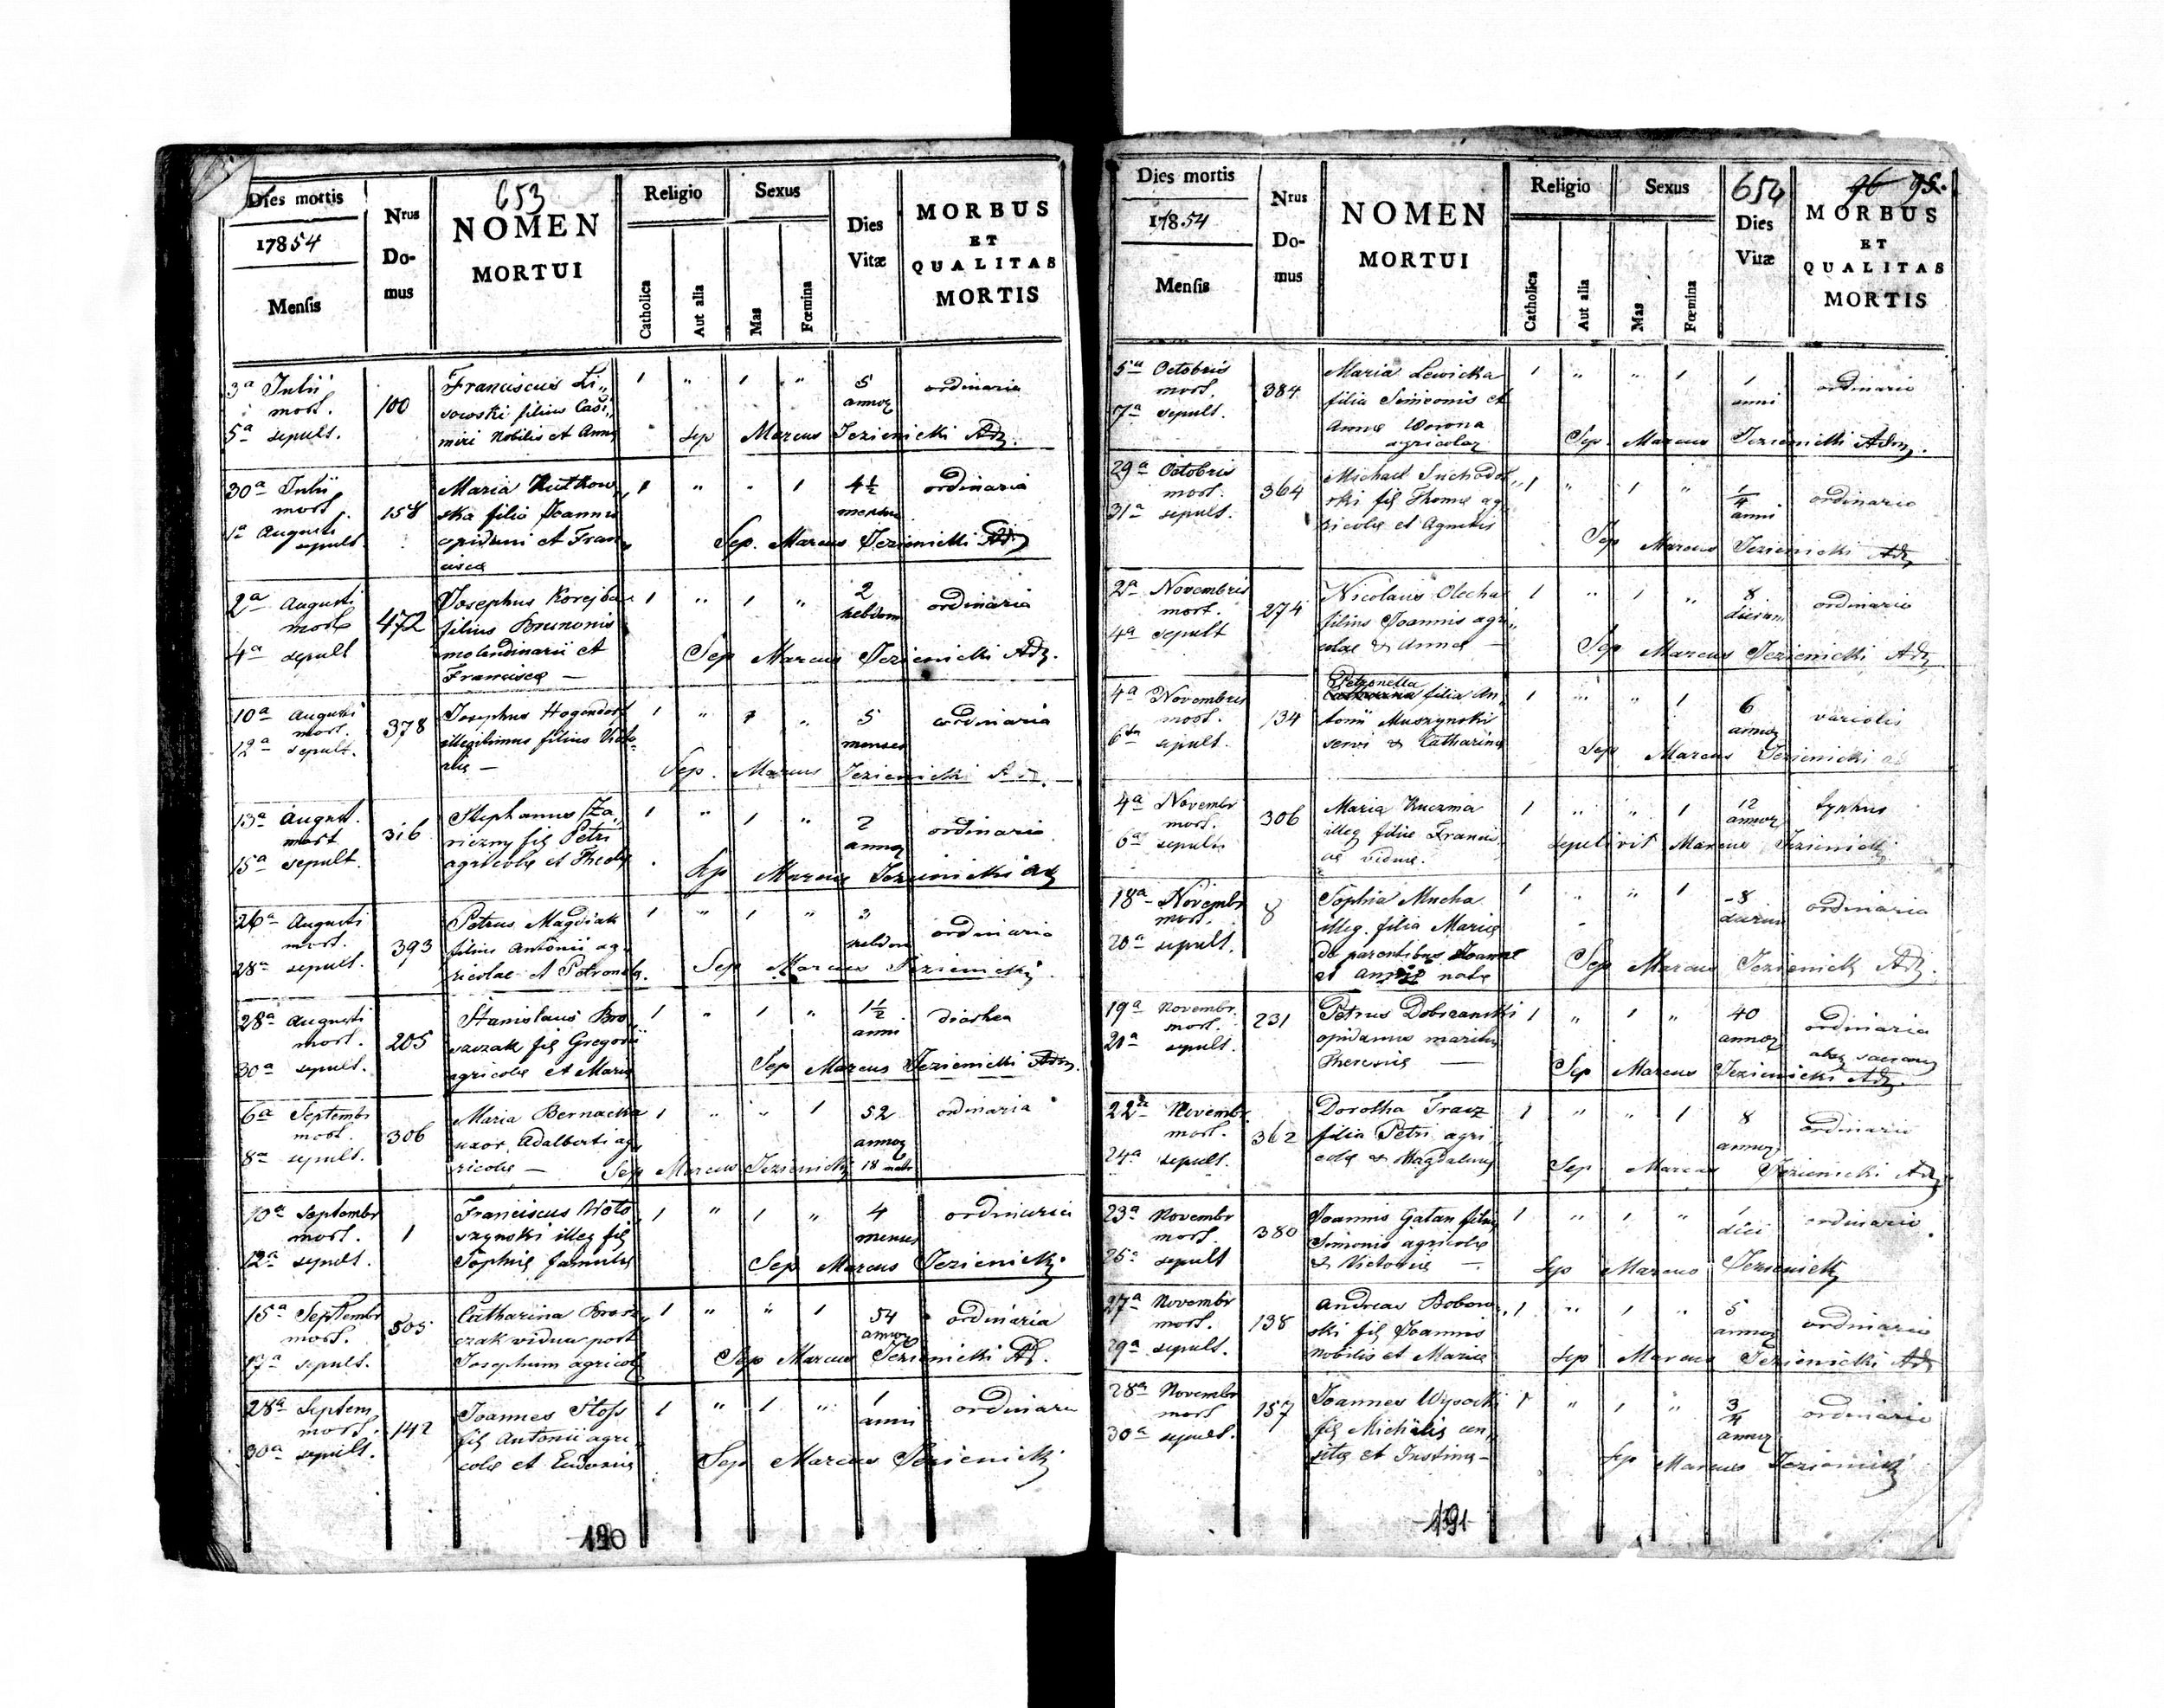 653
Dies mortis
17854
Mensis
Nrus
Do-
mus
NOMEN
MORTUI
Religio
Catholica
Aut alia
Sexus
Mas
Fœmina
Dies
Vitæ
MORBUS
ET
QUALITAS
MORTIS
3a Julii
mort.
5a sepult.
100
Franciscus Li„
sowski filius Casi„
miri Nobilis et Annæ
1 „ 1 „
5
annoz
ordinaria
Sep Marcus Jezienicki Adz.
30a Julii
mort.
1a Augusti
sepult.
158
Maria Rutkow„
ska filia Joannis
opidani et Fran„
cisca
1 „ „ 1
4½
menses
ordinaria
Sep. Marcus Jezienicki Adz
2a Augusti
mort
4a sepult
472
Josephus Korejba
filius Brunonis
molendinarii et
Francisca —
1 „ 1 „
2
hebdom
ordinaria
Sep Marcus Jezienicki Adz.
10a Augusti
mort.
12a sepult.
378
Josephus Hogendorf
illegitimus filius Victo-
riæ —
1 „ 1 „
5
menses
ordinaria
Sep. Marcus Jezienicki
13a August.
mort
15a sepult.
316
Stephanus
Petri
agricolæ et
1 „ 1 „
2
annoz
ordinaria
Sep Marcus Jezienicki Adz
26a Augusti
mort.
28a sepult.
393
Petrus Magdziak
filius Antonii ag-
ricolae et Petronela.
1 „ 1 „
hebdom
ordinaria
Sep Marcus Jezienicki
28a Augusti
mort.
30a sepult.
205
Stanislaus Bro„
szczak fil Gregorii
agricolæ et Mariæ
1 „ 1 „
1½
anni
diarhea
Sep Marcus Jezienicki Adm.
6a Septembr
mort.
8a sepult.
306
Maria Bernacka
uxor Adalberti ag„
ricolæ —
1 „ „ 1
52
annoz
ordinaria
Sep Marcus Jezienicki
10a Septembr
mort.
12a sepult.
1
Franciscus Woto„
szynski illeg fil
Sophiæ famulæ
1 „ 1 „
4
menses
ordinaria
Sep Marcus Jezienicki
15a Septembr
mort.
17a sepult.
505
Catharina Brosz„
czak vidua post
Josephum agricol
1 „ „ 1
54
annoz
ordinaria
Sep Marcus Jezienicki Ad.
28a Septem
mort.
30a sepult.
142
Joannes Stoss
fil Antonii agri„
colæ et Eudoxiæ
1 „ 1 „
1
anni
ordinaria
Sep Marcus Jezienicki
190
654
96 95.
Dies mortis
17854
Mensis
Nrus
Do-
mus
NOMEN
MORTUI
Religio
Catholica
Aut alia
Sexus
Mas
Fœmina
Dies
Vitæ
MORBUS
ET
QUALITAS
MORTIS
5a Octobris
mort.
7a sepult.
384
Maria Lewicka
filia Simeonis et
Annæ Worona
agricolaz
1 „ „ 1
1
anni
ordinaria
Sep. Marcus Jezienicki Adm.
29a Octobris
mort.
31a sepult.
364
Michael Suchodol„
ski fil Thomæ ag„
ricolæ et Agnetis
1 „ 1 „
¼
anni
ordinaria
Sep Marcus Jezienicki Adz
2a Novembris
mort.
4a sepult
274
Nicolaus Olecha
filius Joannis agri„
colae & Annæ —
1 „ 1 „
8
dierum
ordinaria
Sep Marcus Jezienicki Adz
4a Novembris
mort.
6ta sepult.
134
Petronella
Catharina filia An„
tonii Muszynski
servi & Catharinæ
1 „ „ 1
6
annoz
variolis
Sep Marcus Jezienicki
4a Novembr
mort.
6a sepult
306
Maria Kuczma
illeg filia Francis„
cæ viduæ.
1 „ „ 1
12
annoz
typhus
sepelivit Marcus Jezienicki
18a Novembr
mort.
20a sepult.
8
Sophia Mucha
illeg. filia Mariæ
de parentibus Joanne
et natæ
1 „ „ 1
8
dierum
ordinaria
Sep Marcus Jezienicki Adz.
19a Novembr.
mort.
21a sepult.
231
Petrus Dobrzanski
opidanus maritus
Theresiæ —
1 „ 1 „
40
annoz
ordinaria
Sep Marcus Jezienicki Adz.
22a Novembr.
mort.
24a sepult.
362
Dorotha Tracz
filia Petri agri„
colæ & Magdalenæ
1 „ „ 1
8
annoz
ordinaria
Sep Marcus Jezienicki Adz
23a Novembr
mort.
25a sepult
380
Joannis Gatan filius
Simonis agricolæ
& Victoriæ —
1 „ 1 „
1
diei
ordinaria
Sep Marcus Jezienicki
27a Novembr
mort.
29a sepult.
138
Andreas Bobow„
ski fil Joannis
Nobilis et Mariæ
1 „ 1 „
5
annoz
ordinaria
Sep Marcus Jezienicki Adz
28a Novembr
mort
30a sepult.
157
Joannes Wysocki
fil Michælis
et Justinæ —
1 „ 1 „
¾
annoz
ordinaria
Sep Marcus Jezienicki
191